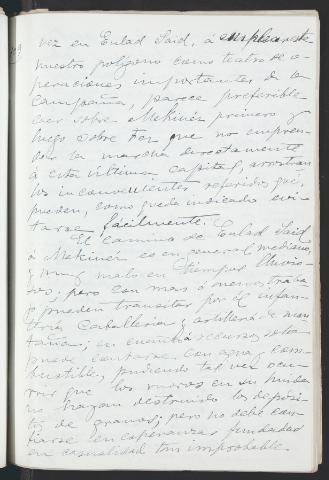 vez en Eulad Said, ó emplear este
nuestro polígono como teatro de o-
peraciones importantes de la
campaña, parece preferible
caer sobre Mekinez primero y
luego sobre Fez que no empren-
der la marcha directamente
á esta última capital, arrostran
los inconvenientes referidos que,
pueden, como queda indicado evi-
tarse fácilmente.
El camino de Eulad Said
á Mekinez es en general mediano,
y muy malo en tiempos lluvio-
sos; pero con mas ó menos traba
jo pueden transitar por él infan-
tería caballería y artillería de mon
taña; en cuanto á recursos, solo
puede contarse con agua y com-
bustible, pudiendo tal vez ocu-
rrir que los moros en su huida
no hayan destruido los depósi-
tos de granos; pero no debe con-
fiarse en esperanzas fundadas
en casualidad tan improbable.